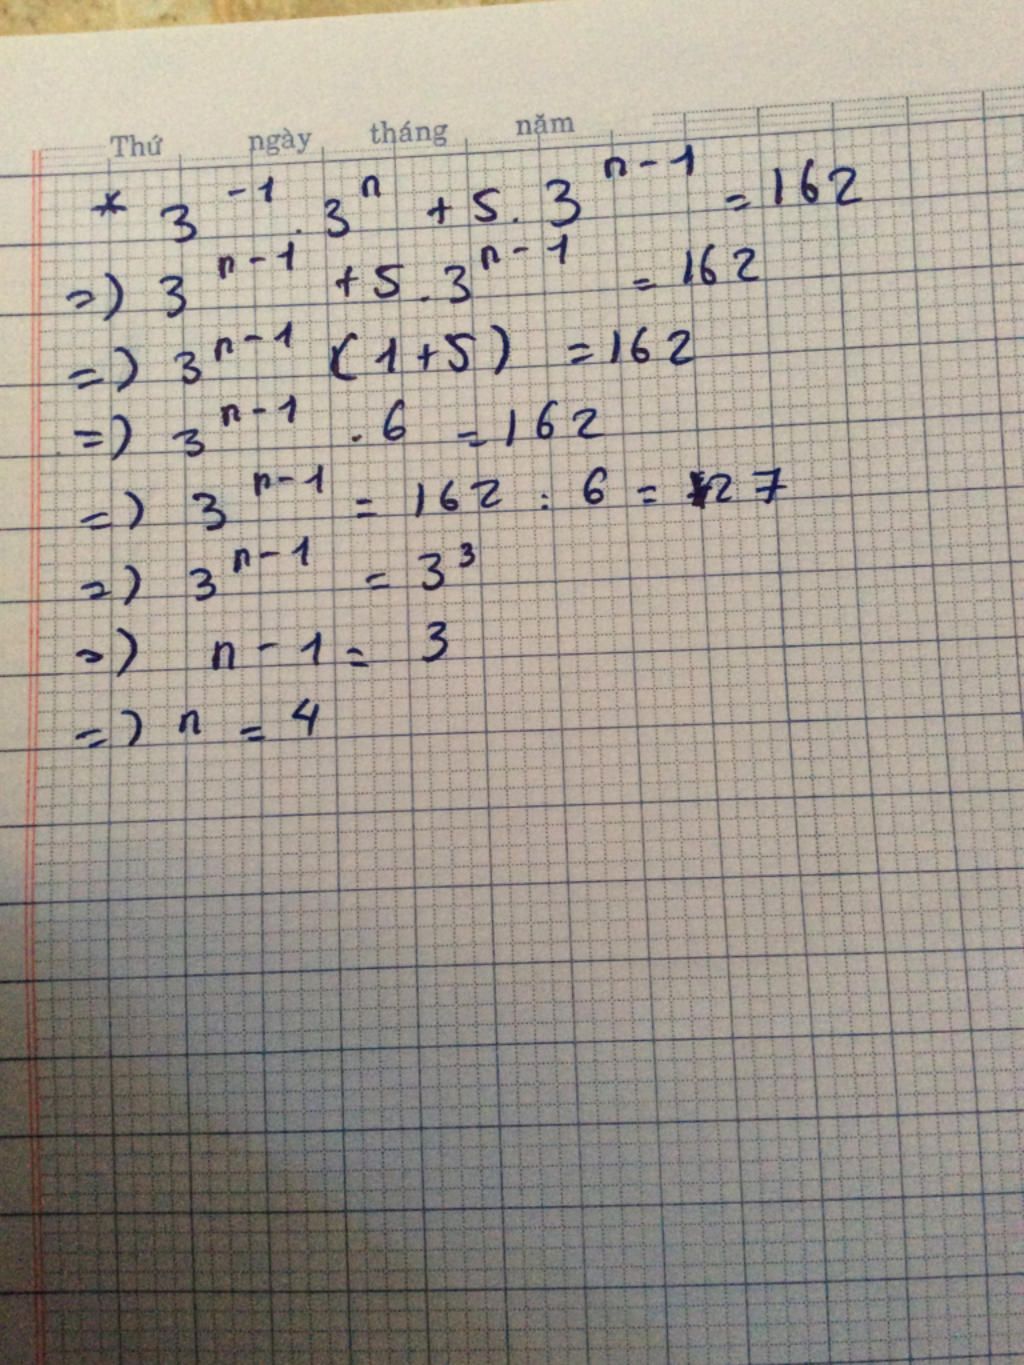 Thứ ngày tháng năm
* 3⁻¹ . 3ⁿ + 5 . 3ⁿ⁻¹ = 162
=) 3ⁿ⁻¹ + 5 . 3ⁿ⁻¹ = 162
=) 3ⁿ⁻¹ (1 + 5) = 162
=) 3ⁿ⁻¹ . 6 = 162
=) 3ⁿ⁻¹ = 162 : 6 = 27
=) 3ⁿ⁻¹ = 3³
=) n - 1 = 3
=) n = 4